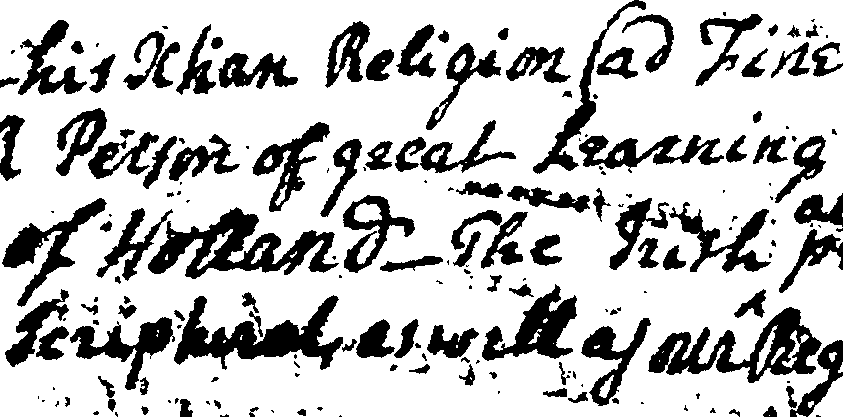 his Xtian Religion (ad Fine
Person of great Learning
of Holland_ The Irish
Scriptural, as well as our Reg